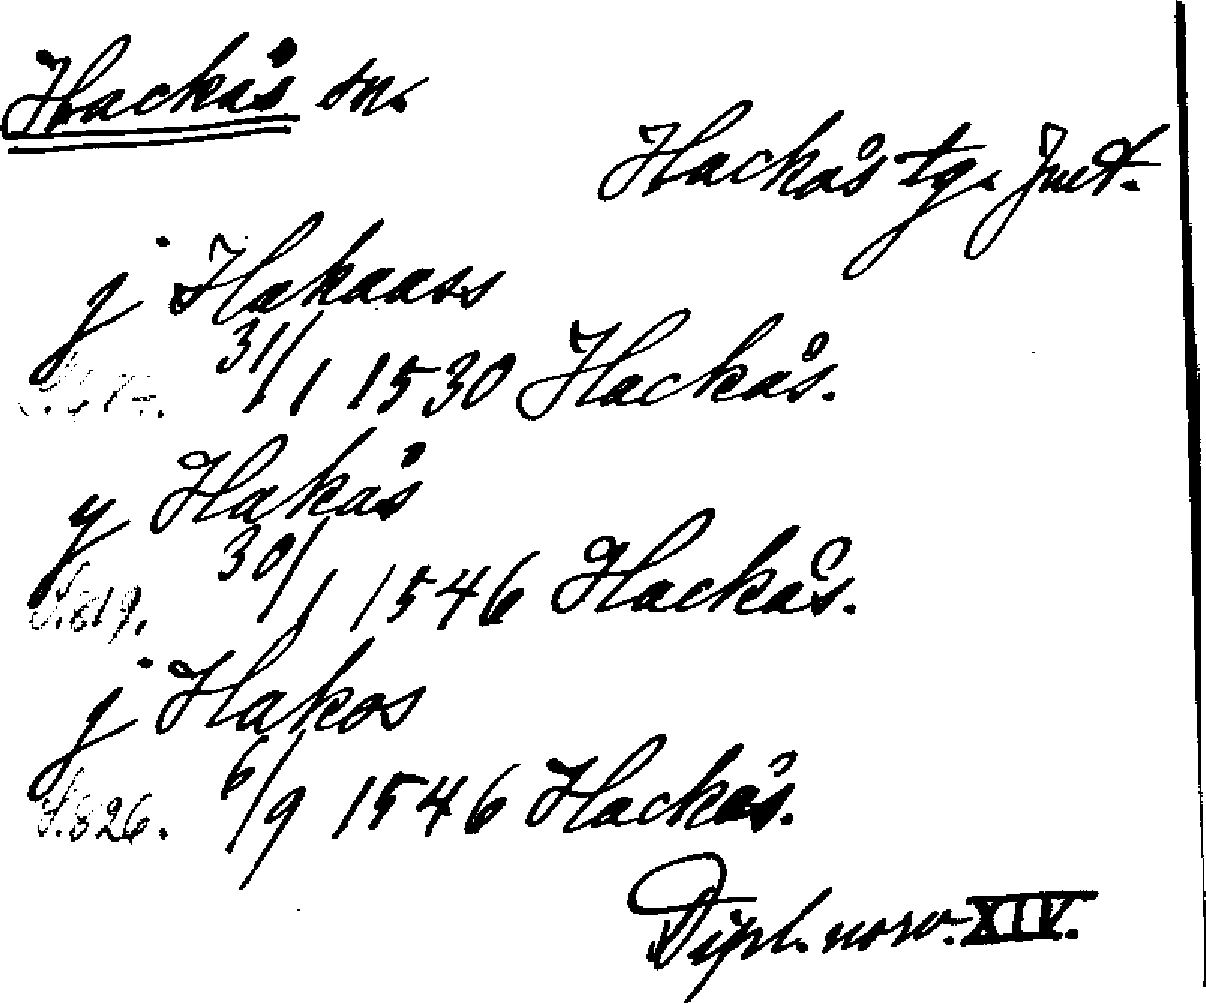 Hackås sn.
Hackås tg. Jmt.
j Hakaass
31/1 1530 Hackås.
y Hakås
S.819. 30/1 1546 Hackås.
j Hakos
S.826. 6/9 1546 Hackås.
Dipl. norv. XIV.